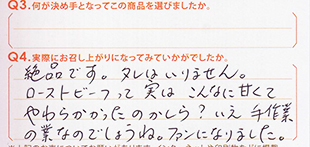 Q3.何が決め手となってこの商品を選びましたか。
Q4.実際にお召し上がりになってみていかがでしたか。
絶品です。タレはいりません。
ローストビーフって実はこんなに甘くて
やわらかかったのかしら?いえ手作業
の業なのでしょうね。ファンになりました。